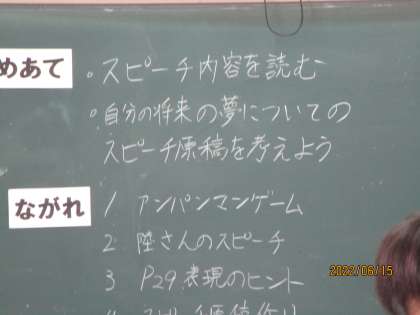 めあて
。スピーチ内容を読む
。自分の将来の夢についての
スピーチ原稿を考えよう
ながれ
1 アンパンマンゲーム
2 陸さんのスピーチ
3 P29 表現のヒント
4
2022/06/15